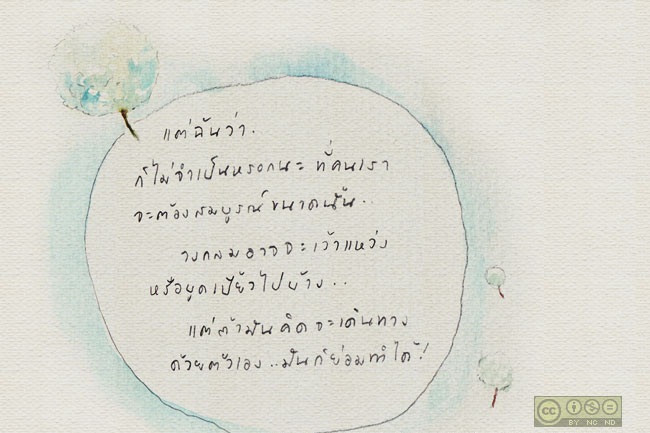 แต่ฉันว่า.
ก็ไม่จำเป็นหรอกนะ ที่คนเรา
จะต้องสมบูรณ์ขนาดนั้น..
วงกลมอาจจะเว้าแหว่ง
หรือบูดเบี้ยวไปบ้าง..
แต่ถ้ามันคิดจะเดินทาง
ด้วยตัวเอง..มันก็ย่อมทำได้!
cc
BY NC ND